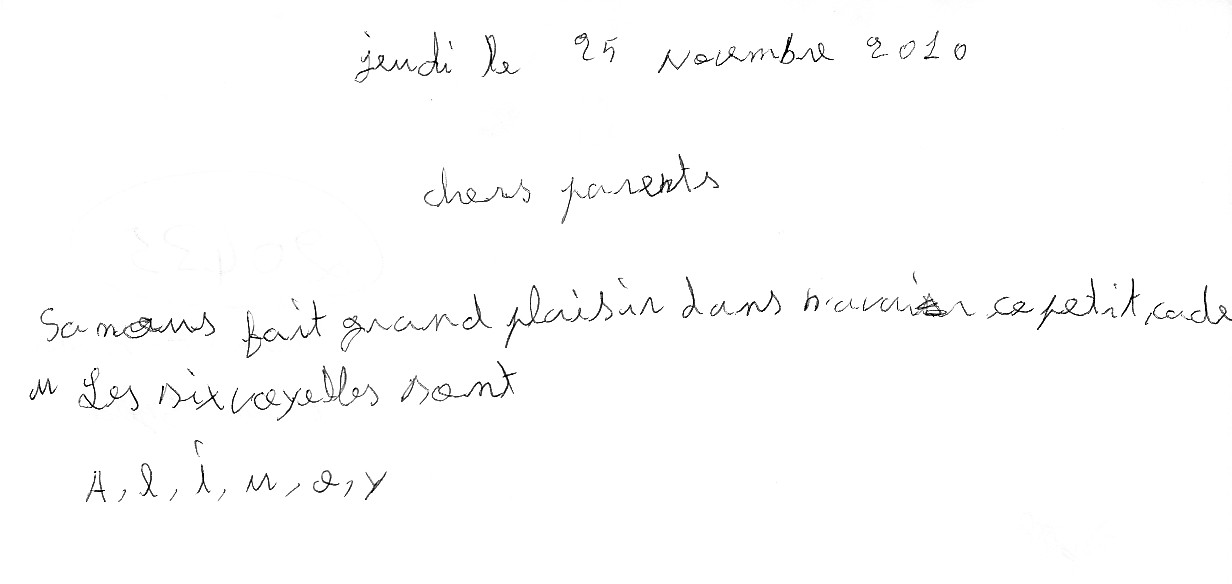 jeudi le 25 Novembre 2010
chers parents
Sa nous fait grand plaisir dans ce petit, cade
u Les six voyelles sont
A, e, i, u, o, y